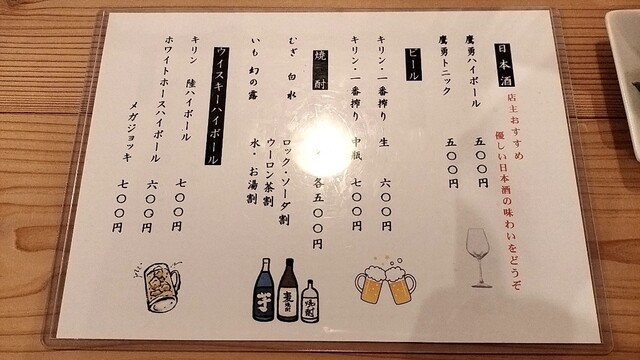 日本酒
店主おすすめ
優しい日本酒の味わいをどうぞ
鷹勇ハイボール 五〇〇円
鷹勇トニック 五〇〇円
ビール
キリン・一番搾り 生 六〇〇円
キリン・一番搾り 中瓶 七〇〇円
焼酎
各五〇〇円
むぎ 白水
ロック・ソーダ割
ウーロン茶割
いも 幻の露
水・お湯割
ウイスキーハイボール
キリン 陸ハイボール 七〇〇円
ホワイトホースハイボール 六〇〇円
メガジョッキ 七〇〇円
芋
麦
焼酎